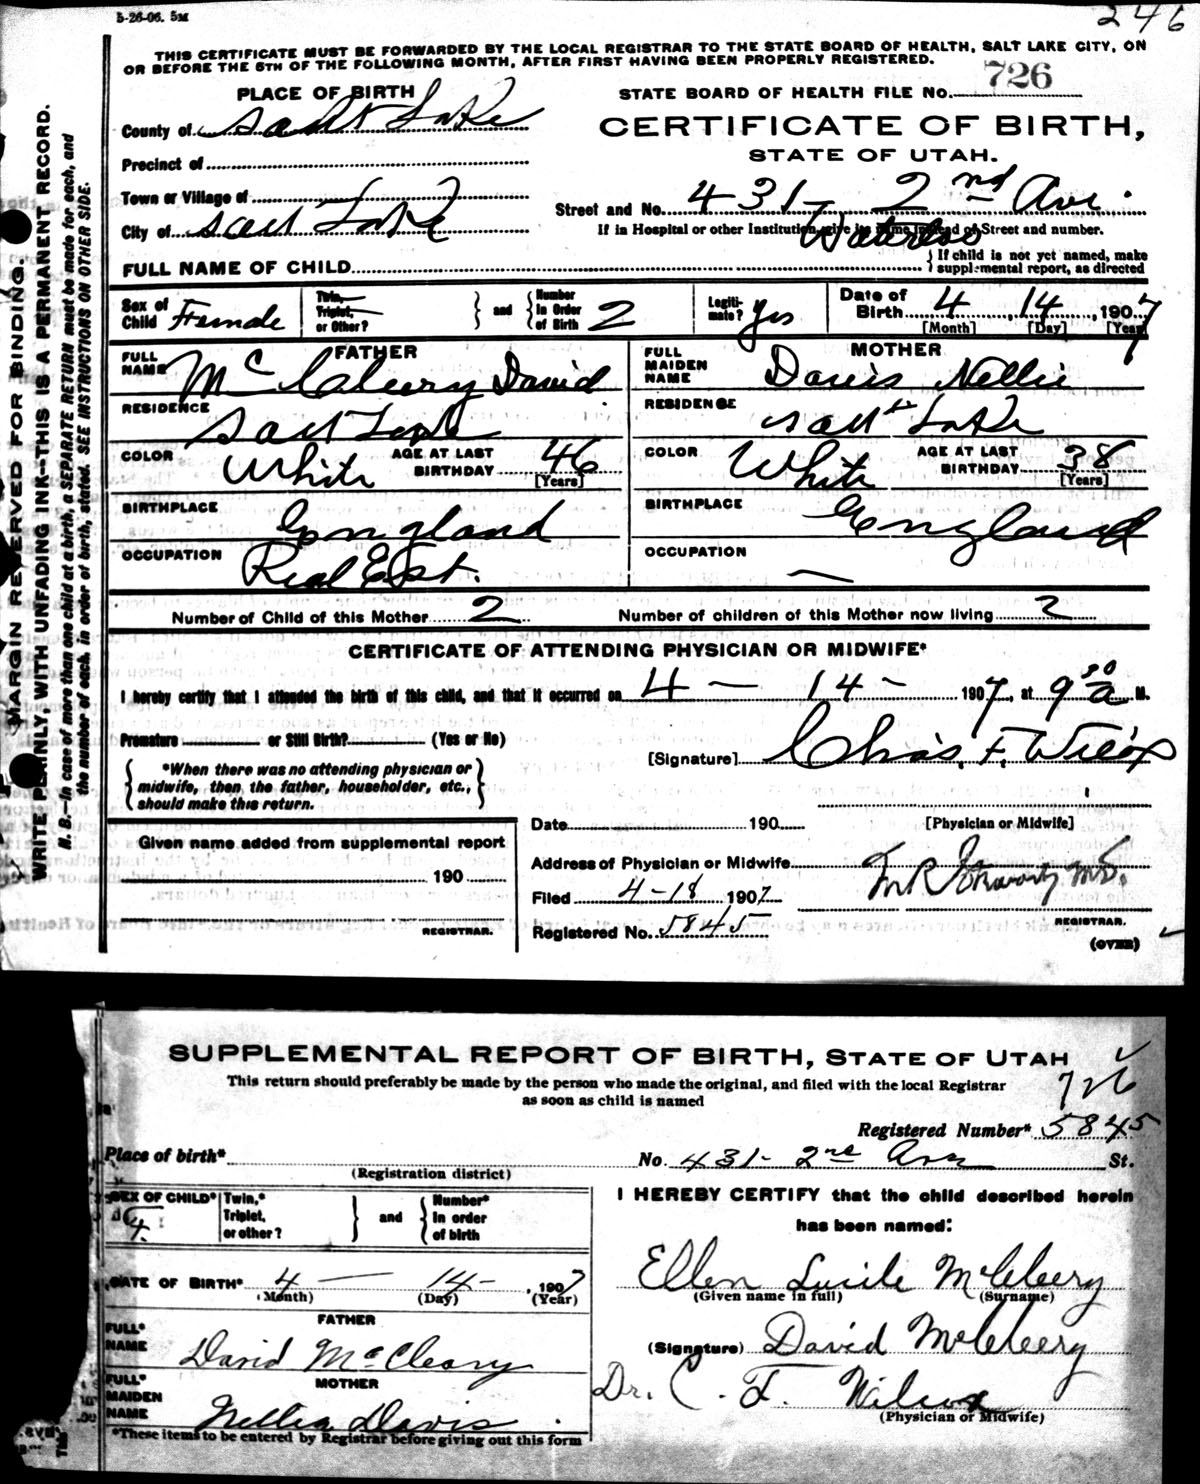 5-26-06. 5M
246
THIS CERTIFICATE MUST BE FORWARDED BY THE LOCAL REGISTRAR TO THE STATE BOARD OF HEALTH, SALT LAKE CITY, ON
OR BEFORE THE 5TH OF THE FOLLOWING MONTH, AFTER FIRST HAVING BEEN PROPERLY REGISTERED.
MARGIN RESERVED FOR BINDING.
WRITE PLAINLY, WITH UNFADING INK—THIS IS A PERMANENT RECORD.
N. B.—In case of more than one child at a birth, a SEPARATE RETURN must be made for each, and
the number of each, in order of birth, stated. SEE INSTRUCTIONS ON OTHER SIDE.
PLACE OF BIRTH
STATE BOARD OF HEALTH FILE NO. 726
County of Salt Lake
CERTIFICATE OF BIRTH,
STATE OF UTAH.
Precinct of
Town or Village of
Street and No. 431- 2nd Ave.
City of Salt Lake
If in Hospital or other Institution, give its name instead of Street and number.
Waterloo
FULL NAME OF CHILD
If child is not yet named, make
supplemental report, as directed
Sex of Child Female
Twin, Triplet, or Other?
and
Number in Order of Birth 2
Legitimate? Yes
Date of Birth 4 14, 1907
[Month] [Day] [Year]
FATHER
FULL NAME McCleery David
MOTHER
FULL MAIDEN NAME Davis Nellie
RESIDENCE Salt Lake
RESIDENCE Salt Lake
COLOR White AGE AT LAST BIRTHDAY 46 [Years]
COLOR White AGE AT LAST BIRTHDAY 38 [Years]
BIRTHPLACE England
BIRTHPLACE England
OCCUPATION Real Est.
OCCUPATION —
Number of Child of this Mother 2 Number of children of this Mother now living 2
CERTIFICATE OF ATTENDING PHYSICIAN OR MIDWIFE*
I hereby certify that I attended the birth of this child, and that it occurred on 4 - 14 - 1907, at 9 30 a M.
Premature or Still Birth? (Yes or No)
[Signature] Chas. F. Wilcox
*When there was no attending physician or
midwife, then the father, householder, etc.,
should make this return.
Date 190
[Physician or Midwife]
Given name added from supplemental report
190
REGISTRAR.
Address of Physician or Midwife
Filed 4-18 1907
M.D.
REGISTRAR.
Registered No. 5845
(OVER)
SUPPLEMENTAL REPORT OF BIRTH, STATE OF UTAH
This return should preferably be made by the person who made the original, and filed with the local Registrar
as soon as child is named
726
Registered Number* 5845
Place of birth* No. 431- 2nd Ave St.
(Registration district)
SEX OF CHILD*
Twin,* Triplet, or other?
and
Number* in order of birth
I HEREBY CERTIFY that the child described herein
has been named:
DATE OF BIRTH* 4 — 14-, 1907
(Month) (Day) (Year)
Ellen Lucile McCleery
(Given name in full) (Surname)
FATHER
FULL* NAME David McCleary
(Signature) David McCleery
MOTHER
FULL* MAIDEN NAME Nellie Davis
Dr. C. F. Wilcox
(Physician or Midwife)
*These items to be entered by Registrar before giving out this form